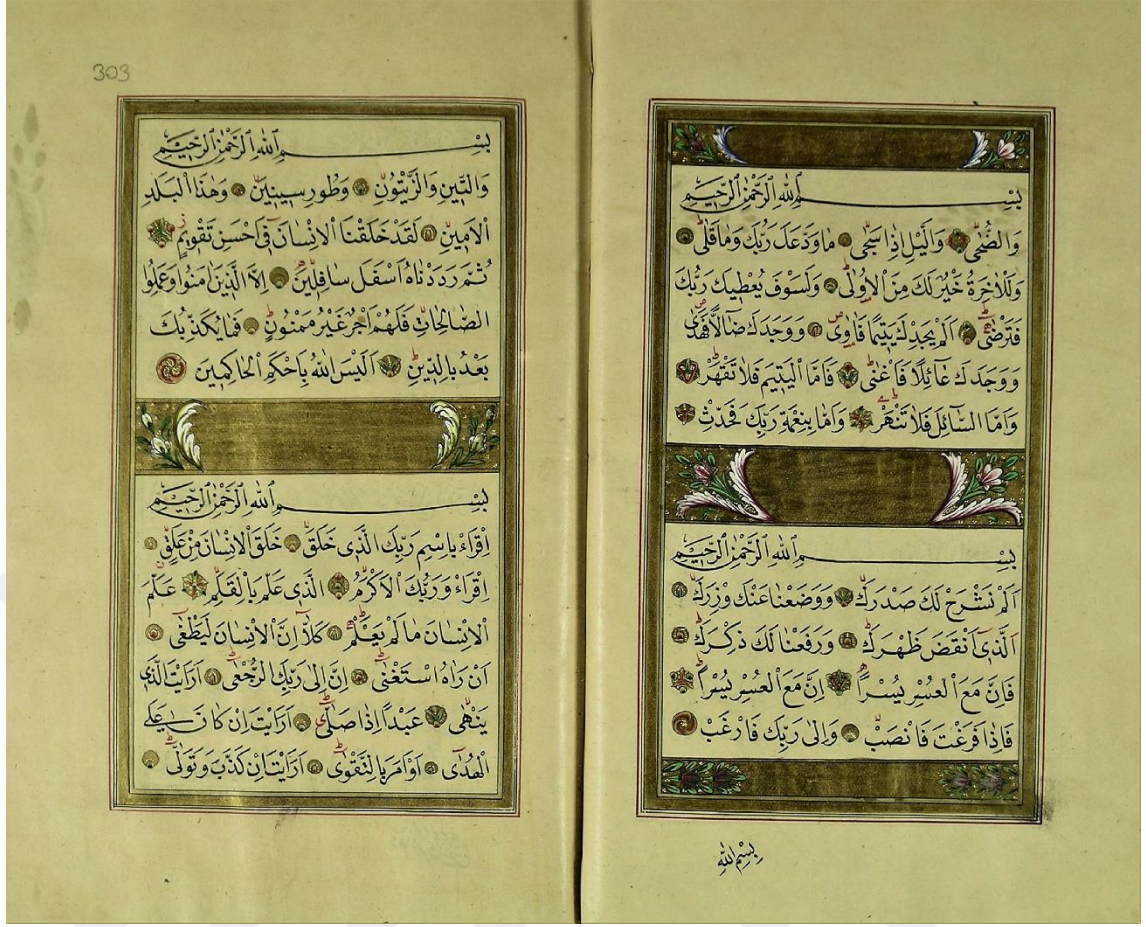 بِسْمِ اللّٰهِ الرَّحْمٰنِ الرَّحِيمِ
وَالضُّحٰى وَالَّيْلِ اِذَا سَجٰى مَا وَدَّعَكَ رَبُّكَ وَمَا قَلٰى
وَلَلْاٰخِرَةُ خَيْرٌ لَكَ مِنَ الْاُو۫لٰى وَلَسَوْفَ يُعْطِيكَ رَبُّكَ
فَتَرْضٰى اَلَمْ يَجِدْكَ يَتِيمًا فَاٰوٰى وَوَجَدَكَ ضَٓالًّا فَهَدٰى
وَوَجَدَكَ عَٓائِلًا فَاَغْنٰى فَاَمَّا الْيَتِيمَ فَلَا تَقْهَرْ
وَاَمَّا السَّٓائِلَ فَلَا تَنْهَرْ وَاَمَّا بِنِعْمَةِ رَبِّكَ فَحَدِّثْ
بِسْمِ اللّٰهِ الرَّحْمٰنِ الرَّحِيمِ
اَلَمْ نَشْرَحْ لَكَ صَدْرَكَ وَوَضَعْنَا عَنْكَ وِزْرَكَ
اَلَّذ۪ٓى اَنْقَضَ ظَهْرَكَ وَرَفَعْنَا لَكَ ذِكْرَكَ
فَاِنَّ مَعَ الْعُسْرِ يُسْرًا اِنَّ مَعَ الْعُسْرِ يُسْرًا
فَاِذَا فَرَغْتَ فَانْصَبْ وَاِلٰى رَبِّكَ فَارْغَبْ
بِسْمِ اللّٰهِ
303
بِسْمِ اللّٰهِ الرَّحْمٰنِ الرَّحِيمِ
وَالتّ۪ينِ وَالزَّيْتُونِ وَطُورِ س۪ين۪ينَ وَهٰذَا الْبَلَدِ
الْاَم۪ينِ لَقَدْ خَلَقْنَا الْاِنْسَانَ ف۪ٓى اَحْسَنِ تَقْو۪يمٍ
ثُمَّ رَدَدْنَاهُ اَسْفَلَ سَافِل۪ينَ اِلَّا الَّذ۪ينَ اٰمَنُوا وَعَمِلُوا
الصَّالِحَاتِ فَلَهُمْ اَجْرٌ غَيْرُ مَمْنُونٍ فَمَا يُكَذِّبُكَ
بَعْدُ بِالدّ۪ينِ اَلَيْسَ اللّٰهُ بِاَحْكَمِ الْحَاكِم۪ينَ
بِسْمِ اللّٰهِ الرَّحْمٰنِ الرَّحِيمِ
اِقْرَاْ بِاسْمِ رَبِّكَ الَّذ۪ى خَلَقَ خَلَقَ الْاِنْسَانَ مِنْ عَلَقٍ
اِقْرَاْ وَرَبُّكَ الْاَكْرَمُ اَلَّذ۪ى عَلَّمَ بِالْقَلَمِ عَلَّمَ
الْاِنْسَانَ مَا لَمْ يَعْلَمْ كَلَّٓا اِنَّ الْاِنْسَانَ لَيَطْغٰٓى
اَنْ رَاٰهُ اسْتَغْنٰى اِنَّ اِلٰى رَبِّكَ الرُّجْعٰى اَرَاَيْتَ الَّذ۪ى
يَنْهٰى عَبْدًا اِذَا صَلّٰى اَرَاَيْتَ اِنْ كَانَ عَلَى
الْهُدٰٓى اَوْ اَمَرَ بِالتَّقْوٰى اَرَاَيْتَ اِنْ كَذَّبَ وَتَوَلّٰى